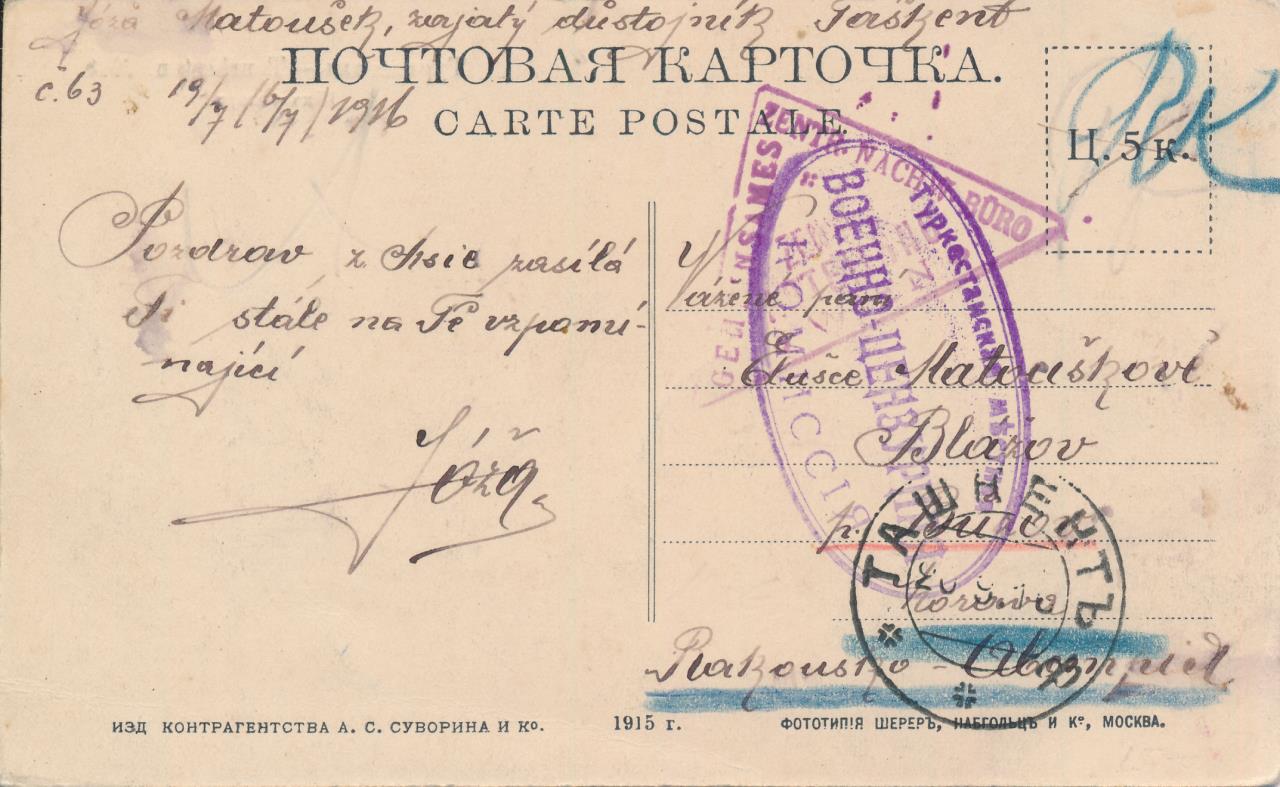 Józa Matoušek, zajatý důstojník Taškent
ПОЧТОВАЯ КАРТОЧКА.
č. 63 19/7 (6/7) 1916
CARTE POSTALE.
Ц. 5 к.
RK
GEMEINSAMES
ZENTR. NACHW. BÜRO
Туркестанская
ВОЕННО-ЦЕНЗУРНАЯ
КОММИССІЯ
Pozdrav z Asie zasílá
Ti stále na Tě vzpomí-
nající
Jóža
Vážené paní
Matouškové
Blažov
p.
ТАШКЕНТЪ
Rakousko -
ИЗД КОНТРАГЕНТСТВА А. С. СУВОРИНА И Ко.
1915 г.
ФОТОТИПІЯ ШЕРЕРЪ, НАБГОЛЬЦЪ И Ко, МОСКВА.